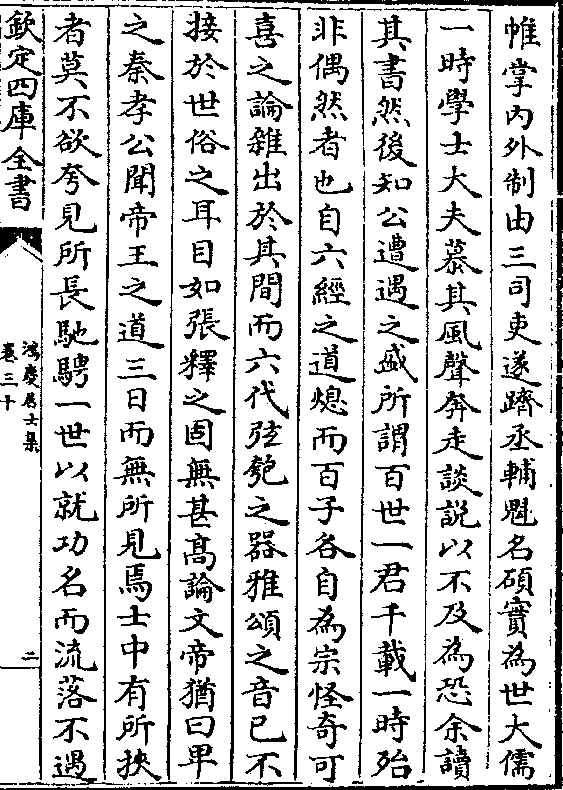 帷掌内外制由三司吏遂躋丞輔魁名碩實為世大儒
一時學士大夫慕其風聲奔走談説以不及為恐余讀
其書然後知公遭遇之盛所謂百世一君千載一時殆
非偶然者也自六經之道熄而百子各自為宗怪奇可
喜之論雜出於其間而六代弦匏之器雅頌之音已不
接於世俗之耳目如張釋之固無甚髙論文帝猶曰卑
之秦孝公聞帝王之道三日而無所見焉士中有所挾
者莫不欲夸見所長馳騁一世以就功名而流落不遇
欽定四庫全書
鴻慶居士集
卷三十
二